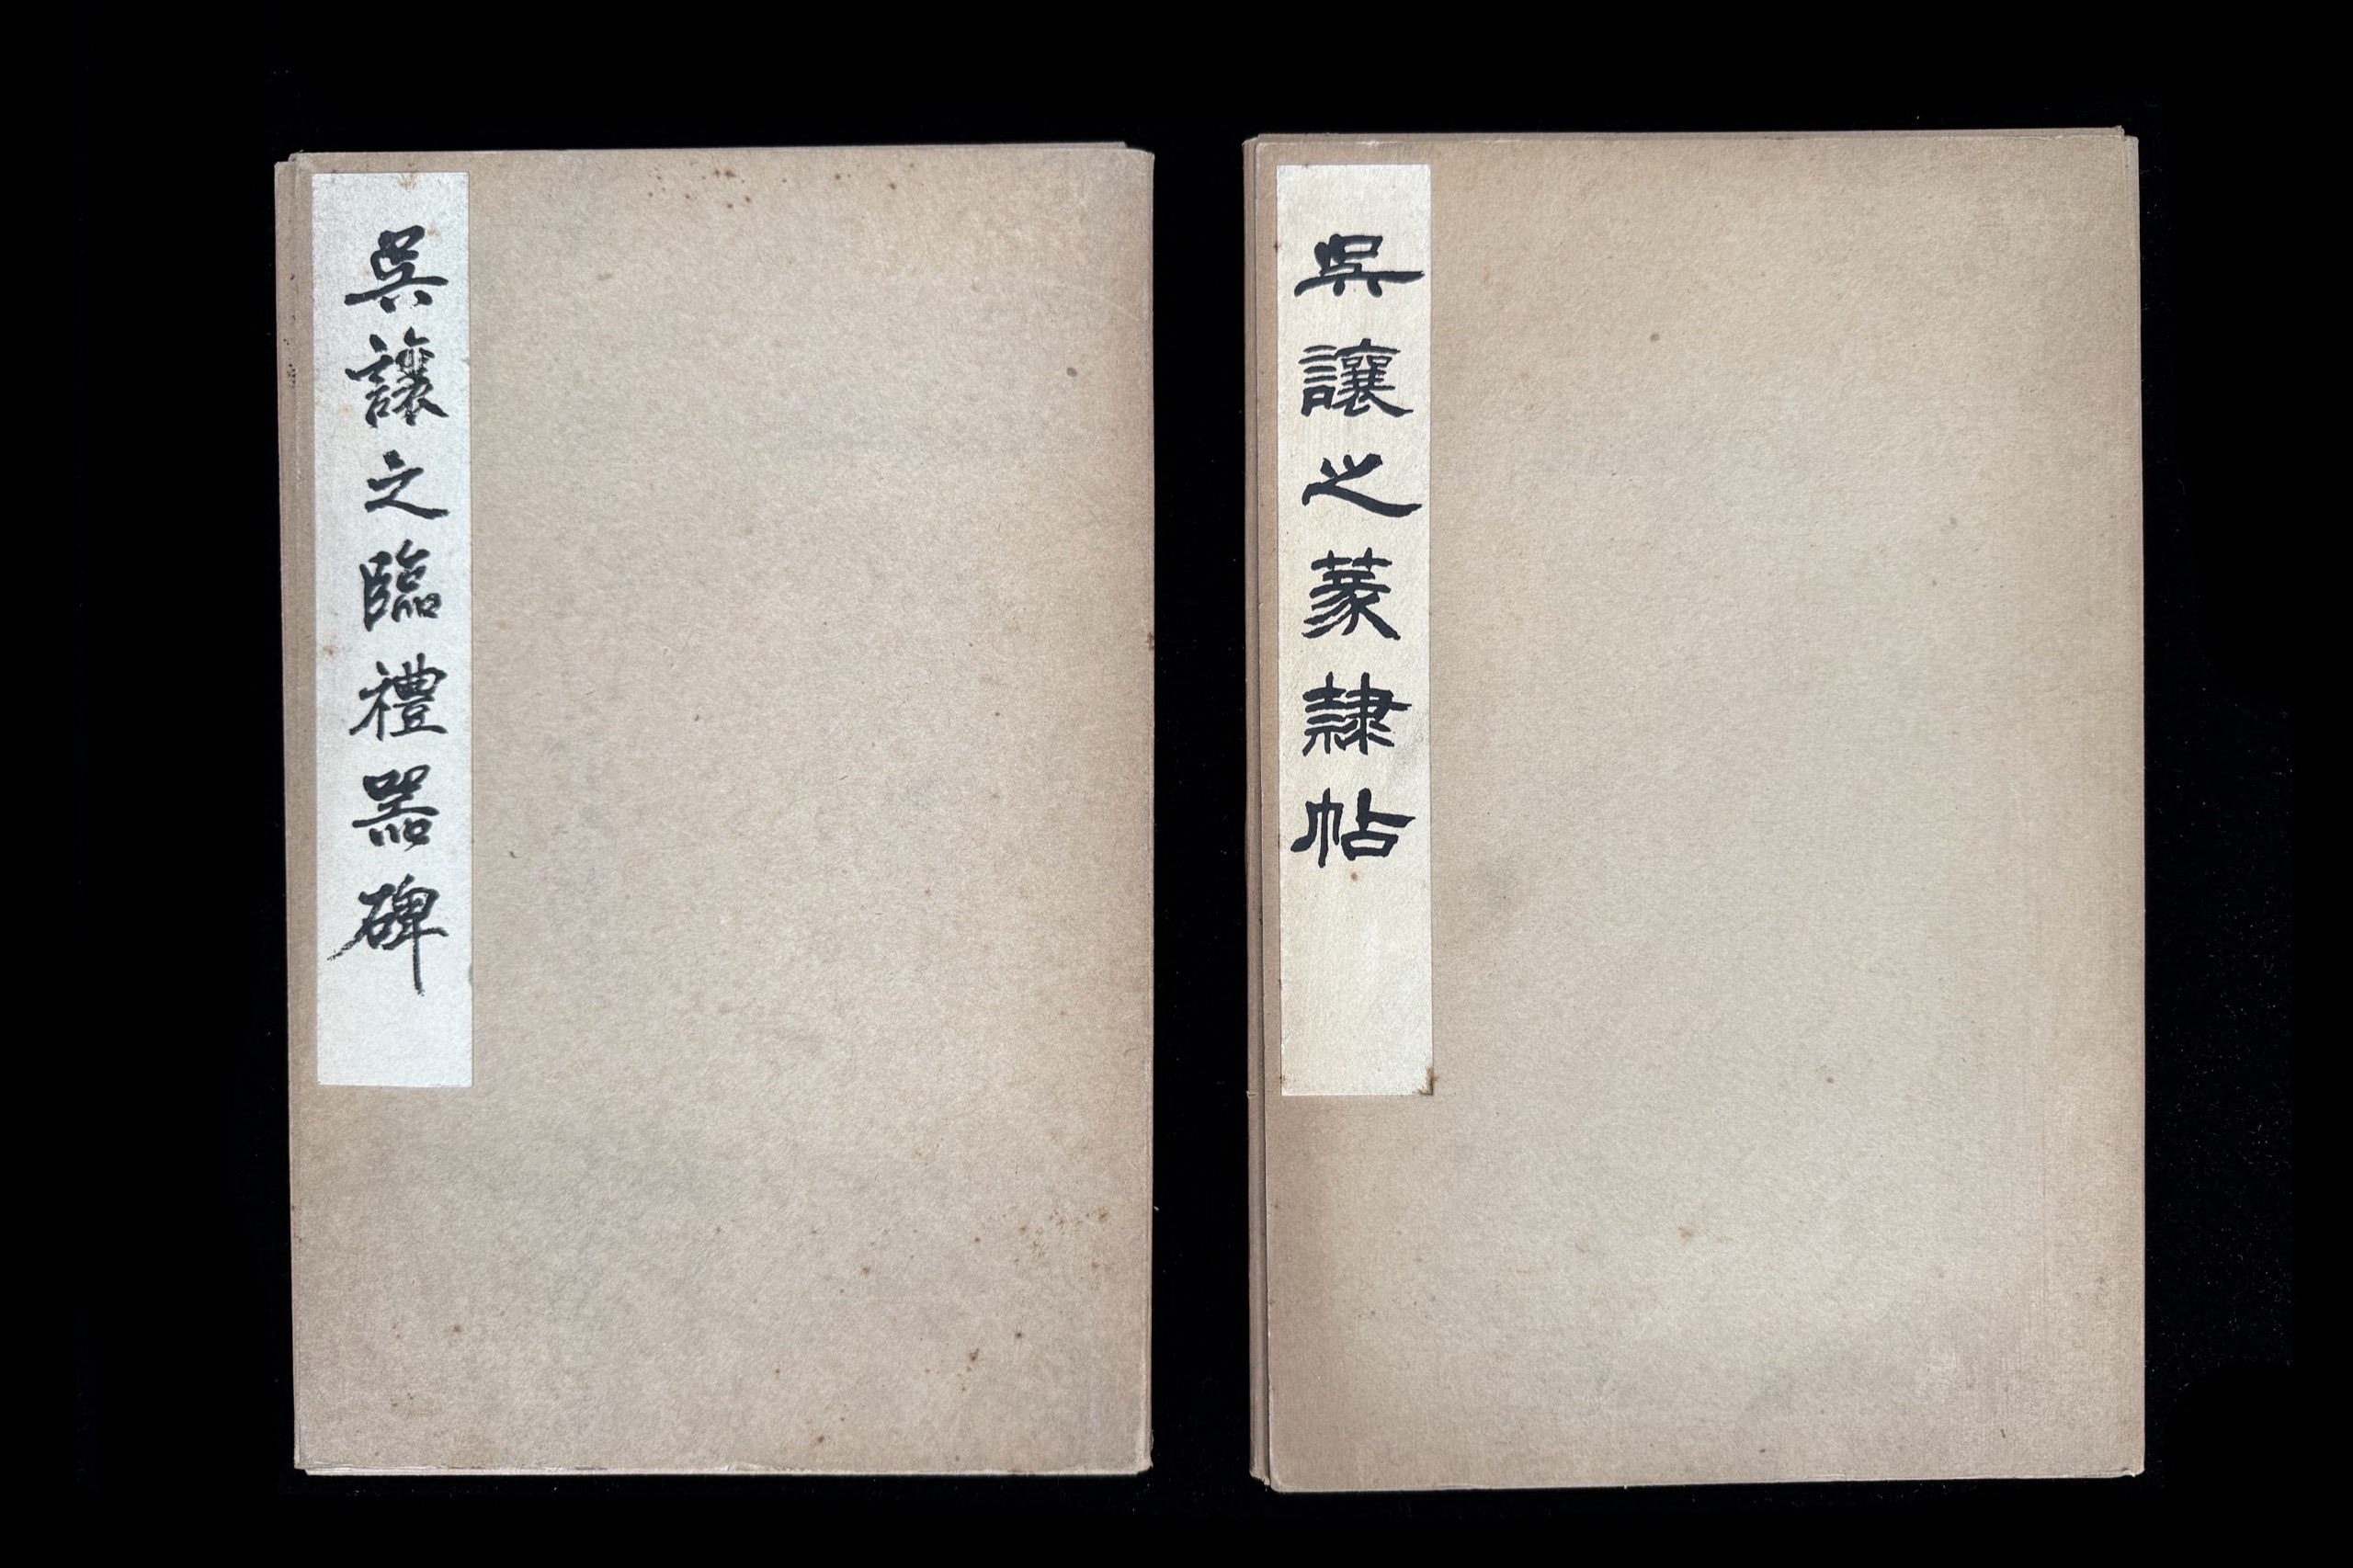 吳讓之臨禮器碑
吳讓之篆隸帖